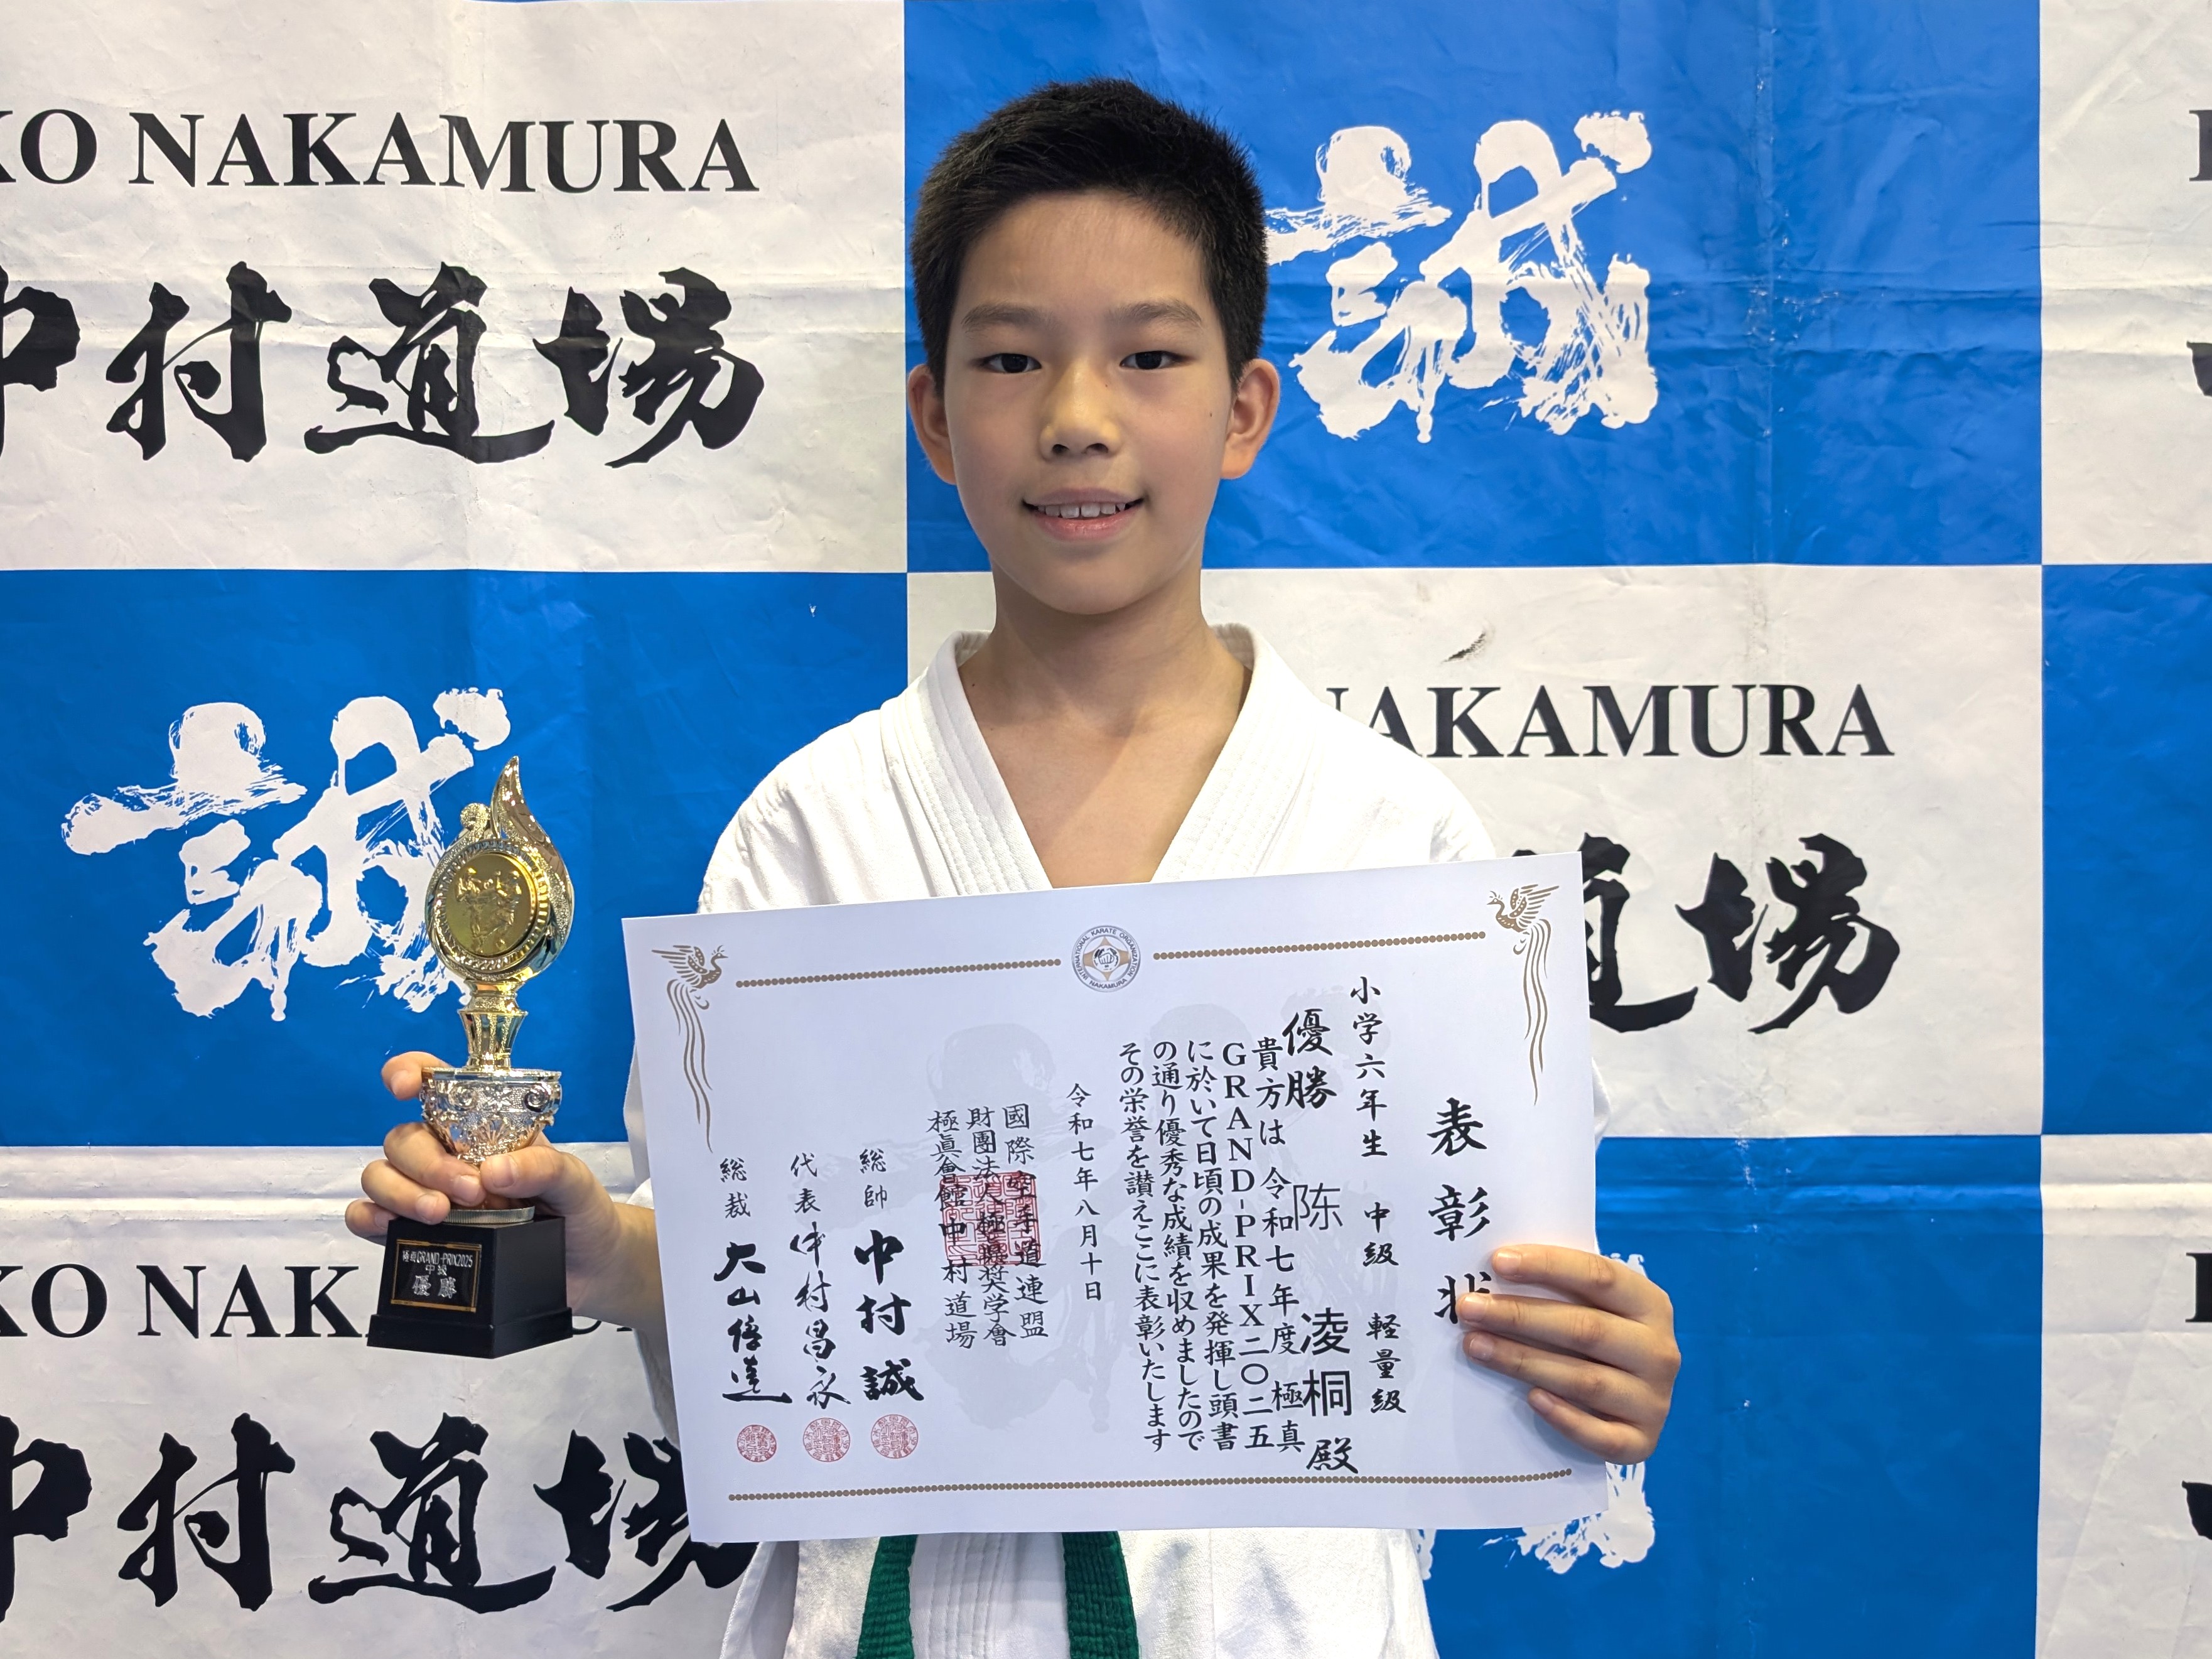 KO NAKAMURA
中村道場
誠
誠
NAKAMURA
道場
KO NAK
中村道場
INTERNATIONAL KARATE ORGANIZATION
NAKAMURA
表彰状
小学六年生 中級 軽量級
優勝 陈 凌桐 殿
貴方は 令和七年度 極真
GRAND-PRIX二〇二五
に於いて日頃の成果を発揮し頭書
の通り優秀な成績を収めましたので
その栄誉を讃えここに表彰いたします
令和七年八月十日
國際空手道連盟
財團法人極真奨学會
極眞會館中村道場
総帥 中村誠
代表 中村昌永
総裁 大山倍達
極真GRAND-PRIX2025
中級
優勝